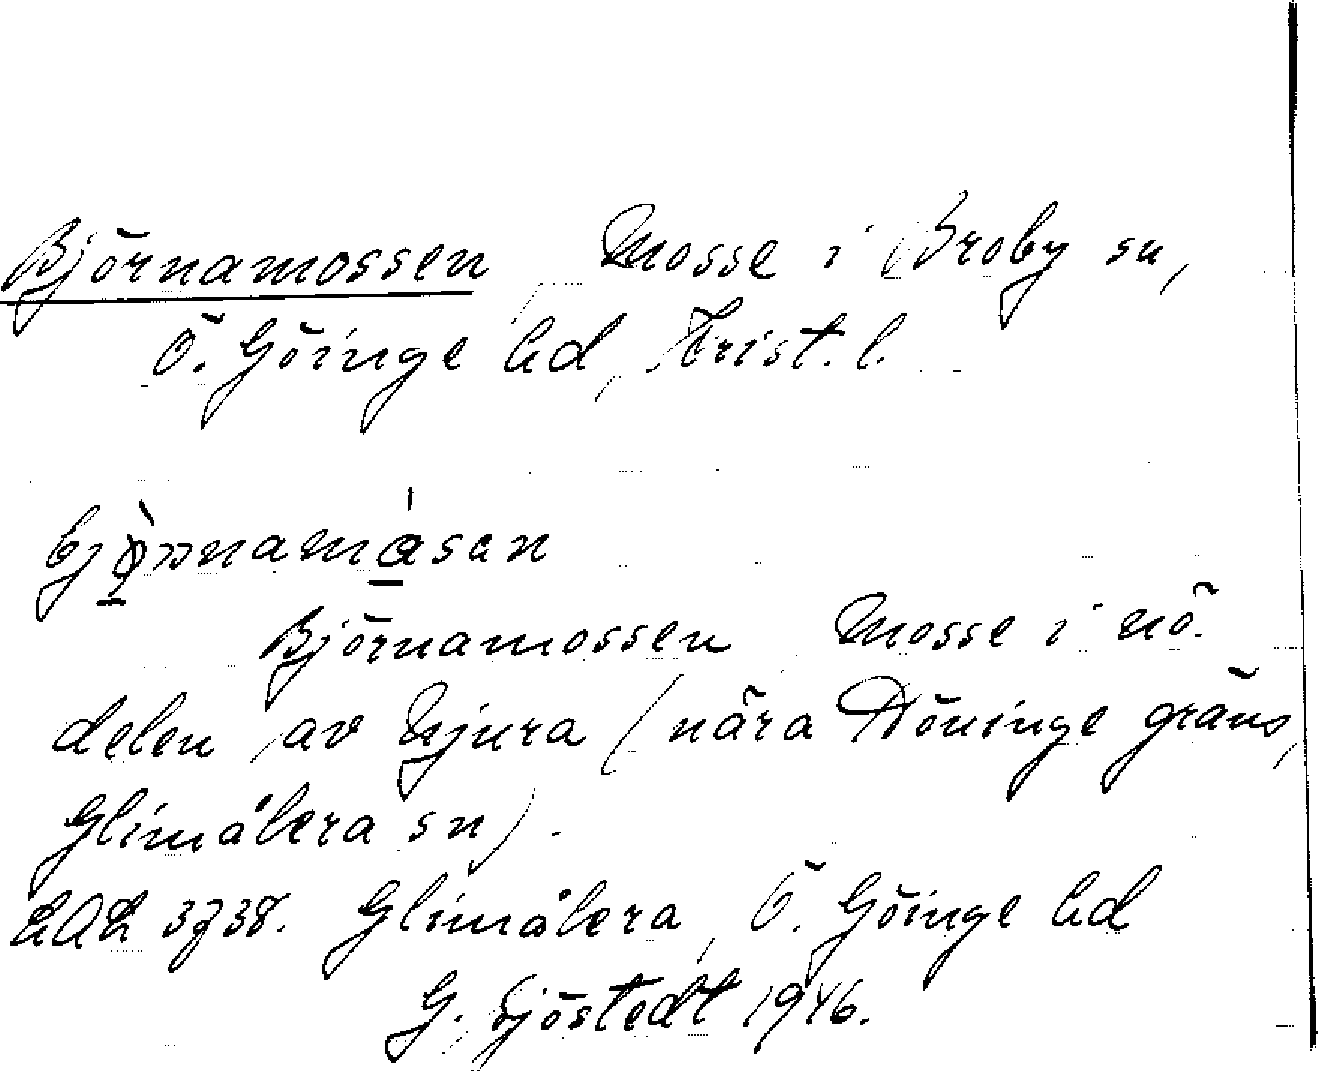 Björnamossen Mosse i Broby sn,
Ö. Göinge hd, Krist. l.
Björnamossen Mosse i nö.
delen av (nära Döninge gräns,
Glimåkra sn).
LAL 3738. Glimåkra, Ö. Göinge hd
G. Sjöstedt 1946.